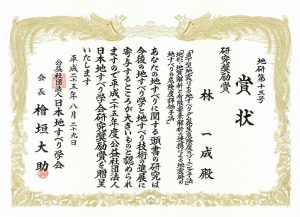 地研第十三号
賞状
研究奨励賞
林 一成 殿
あなたの地すべりに関する頭書の研究は
今後の地すべり学と地すべり技術の進展に
寄与するところが大きいものと認められ
ますので平成二十五年度公益社団法人
日本地すべり学会研究奨励賞を贈呈
いたします
平成二十五年八月二十九日
公益社団法人 日本地すべり学会
会長 檜垣大助